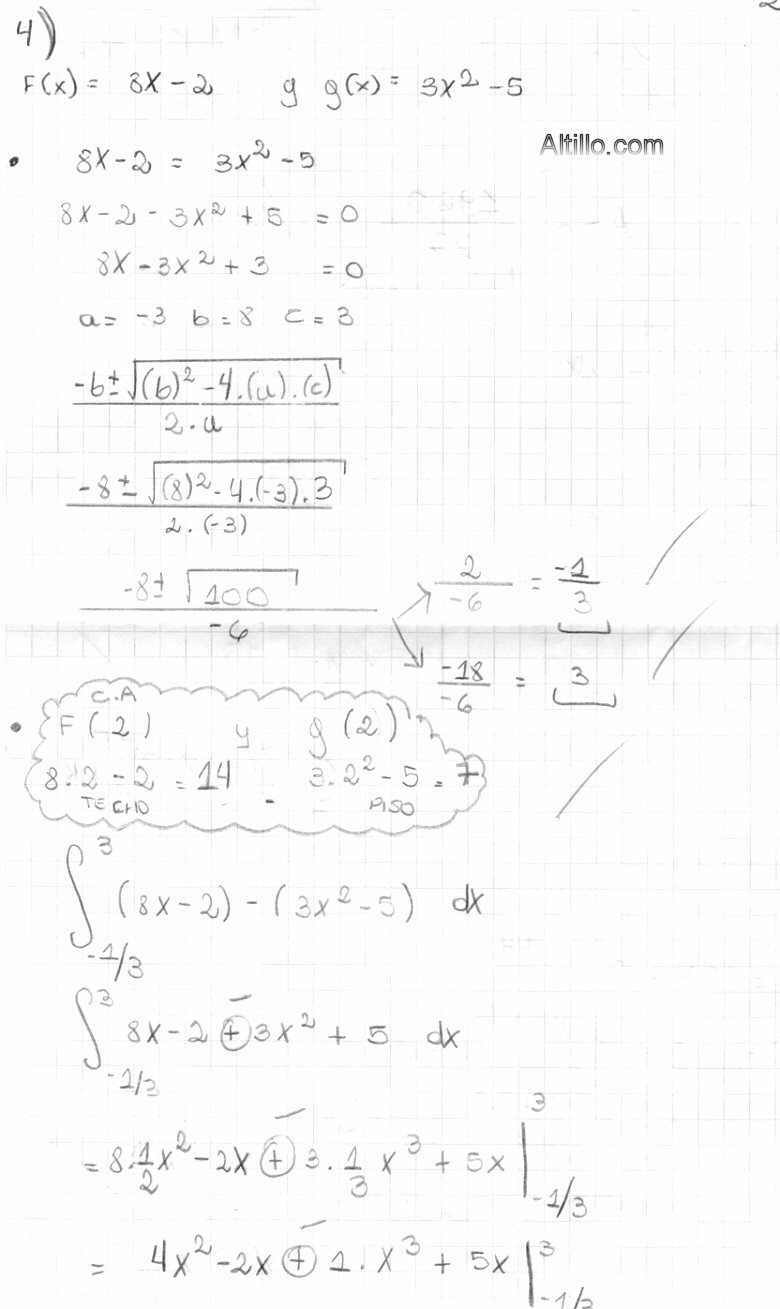 4)
F(x) = 8x - 2 y g(x) = 3x² - 5
Altillo.com
• 8x - 2 = 3x² - 5
8x - 2 - 3x² + 5 = 0
8x - 3x² + 3 = 0
a = -3 b = 8 c = 3
-b ± √(b)² - 4.(a).(c)
2.a
-8 ± √(8)² - 4.(-3).3
2.(-3)
-8 ± √100 / -6
2 / -6 = -1 / 3
-18 / -6 = 3
C.A
• F(2) y g(2)
8.2 - 2 = 14 - 3.2² - 5 = 7
TECHO PISO
∫ 3 -1/3 (8x - 2) - (3x² - 5) dx
∫ 3 -1/3 8x - 2 + - 3x² + 5 dx
= 8.1/2 x² - 2x + - 3.1/3 x³ + 5x | 3 -1/3
= 4x² - 2x + - 1.x³ + 5x | 3 -1/3